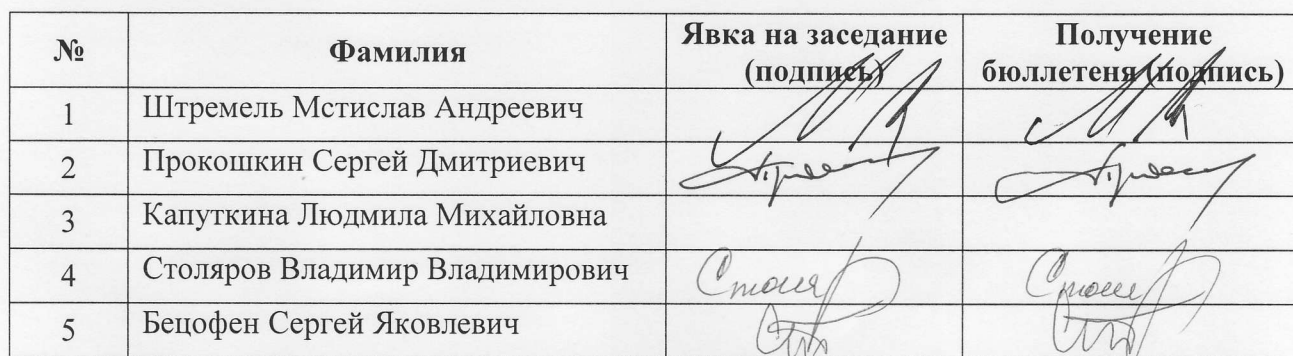 № Фамилия Явка на заседание (подпись) Получение бюллетеня (подпись)
1 Штремель Мстислав Андреевич
2 Прокошкин Сергей Дмитриевич
3 Капуткина Людмила Михайловна
4 Столяров Владимир Владимирович
5 Бецофен Сергей Яковлевич